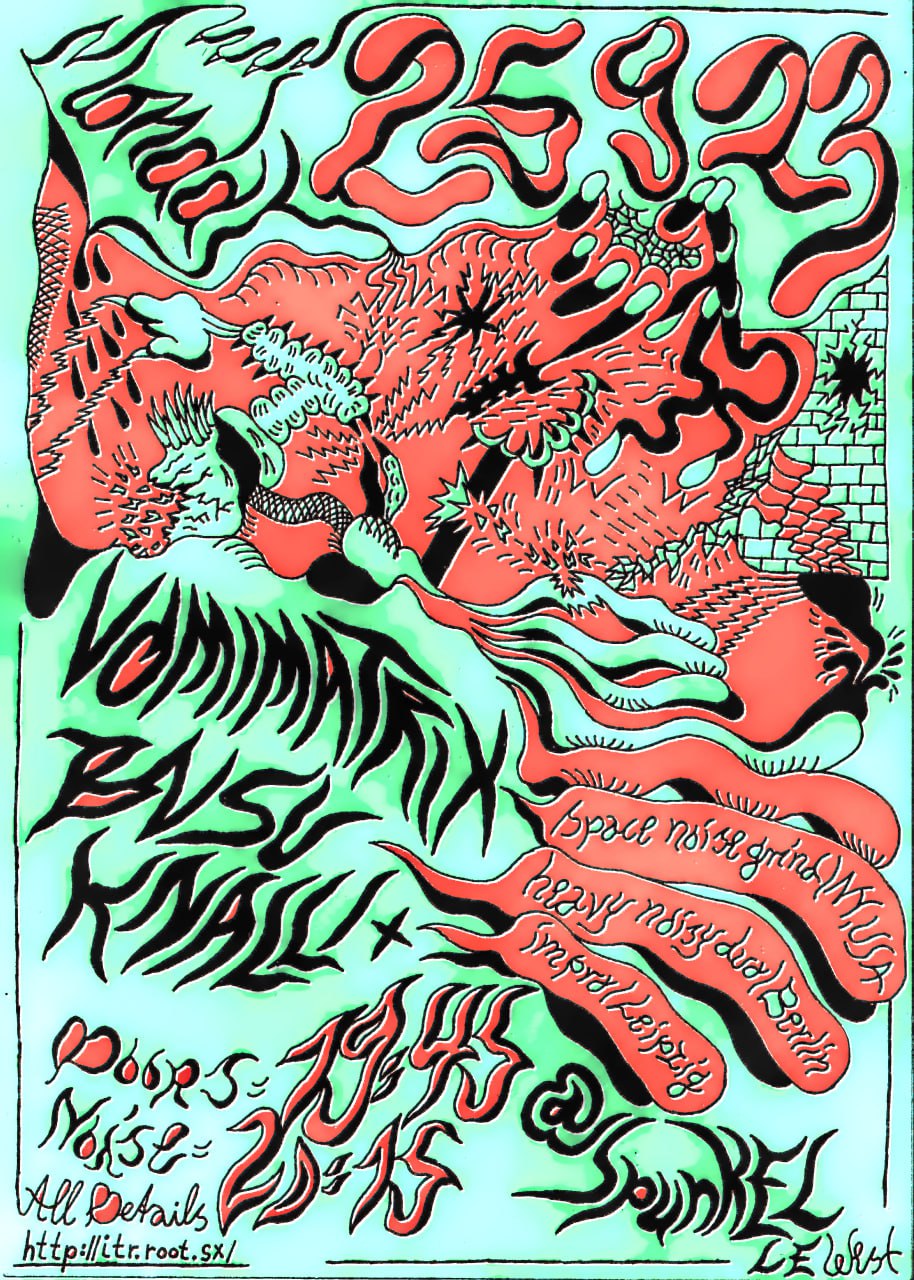 Monday
25 9 23
VOMIMATRIX
BNSU
KNALL! x
space noise grind/NYUSA
heavy noizy dual/Berlin
impra/Leipzig
Doors= 19:45
Noise= 20:15
@ SquNKEL
LE West
All Details
http://itr.root.sx/